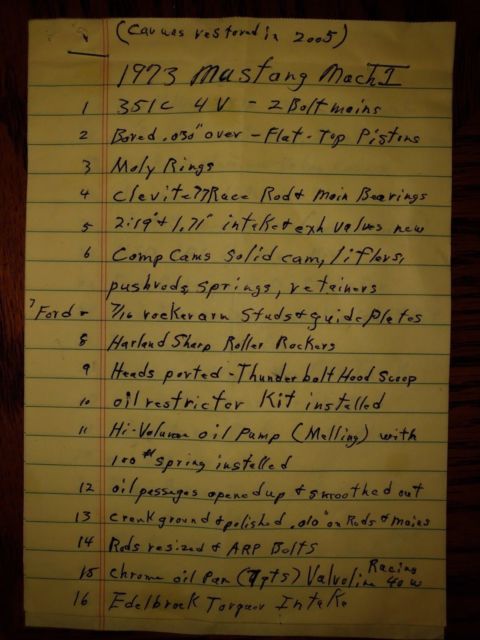 (Car was restored in 2005)
1973 Mustang Mach I
1 351C 4V - 2 Bolt mains
2 Bored .030" over - Flat-Top Pistons
3 Moly Rings
4 Clevite 77 Race Rod & Main Bearings
5 2:19" & 1.71" intake & exh valves new
6 Comp Cams solid cam, lifters,
pushrods, springs, retainers
7 Ford - 7/16 rockerarm studs & guide plates
8 Harland Sharp Roller Rockers
9 Heads ported - Thunderbolt Hood Scoop
10 oil restrictor Kit installed
11 Hi-Volume oil Pump (Melling) with
100# spring installed
12 oil passages opened up & smoothed out
13 crank ground & polished .010" on Rods & Mains
14 Rods resized & ARP Bolts
15 chrome oil Pan (7qts) Valvoline Racing 40w
16 Edelbrock Torquer Intake